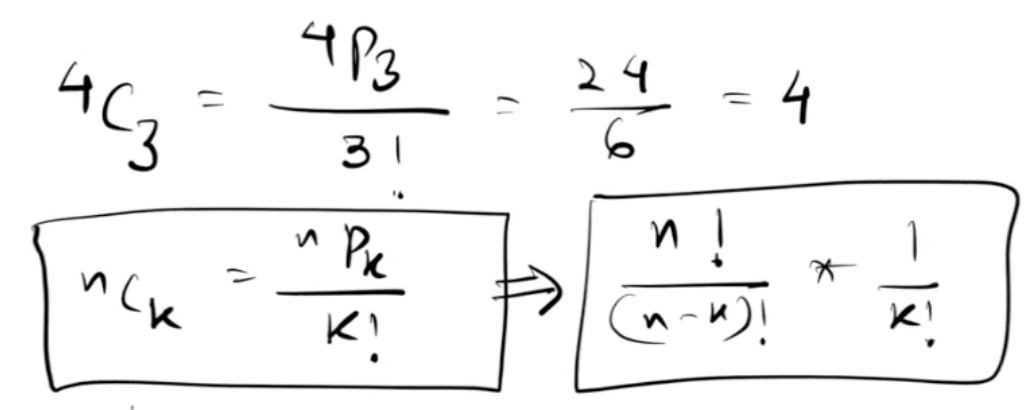 ⁴C₃ = ⁴P₃ / 3! = 24 / 6 = 4
ⁿCₖ = ⁿPₖ / k! ⇒ n! / (n-k)! * 1 / k!